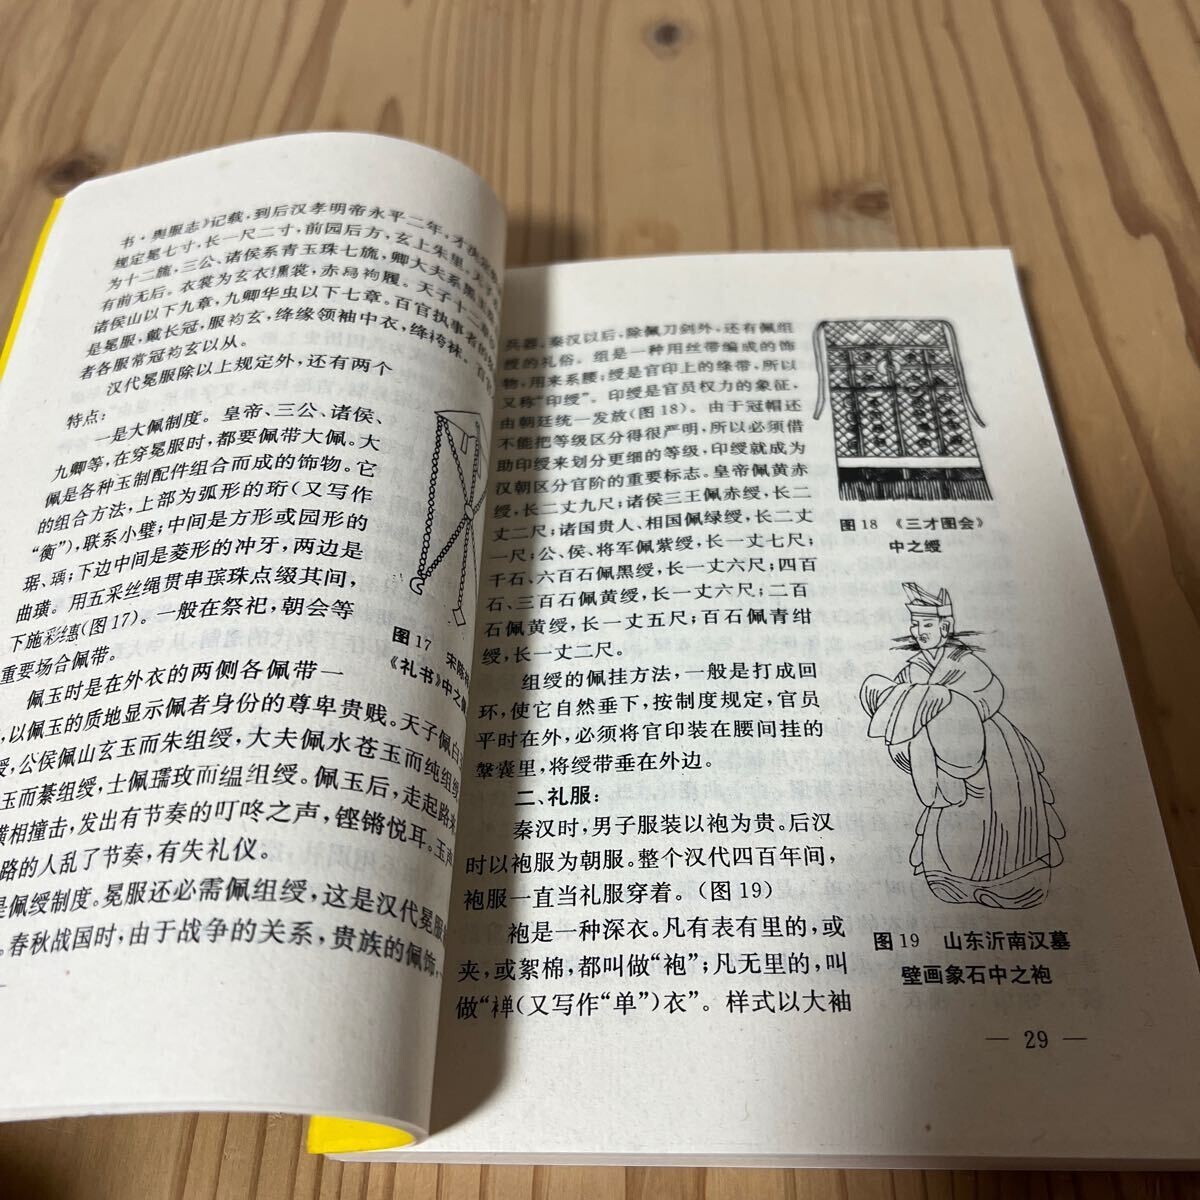 书·舆服志》记载,到后汉孝明帝永平二年,才决
规定冕七寸,长一尺二寸,前园后方,玄上朱里。天子
为十二旒,三公、诸侯系青玉珠七旒,卿大夫系黑玉
有前无后。衣裳为玄衣纁裳,赤舄袧履。天子十二章
诸侯山以下九章,九卿华虫以下七章。百官执事者
是冕服,戴长冠,服袀玄,绛缘领袖中衣,绛袴袜。百官
者各服常冠袀玄以从。
汉代冕服除以上规定外,还有两个
特点:
一是大佩制度。皇帝、三公、诸侯、
九卿等,在穿冕服时,都要佩带大佩。大
佩是各种玉制配件组合而成的饰物。它
的组合方法,上部为弧形的珩(又写作
“衡”),联系小璧;中间是方形或园形的
琚、瑀;下边中间是菱形的冲牙,两边是
曲璜。用五采丝绳贯串瑸珠点缀其间,
下施彩繐(图17)。一般在祭祀,朝会等
重要场合佩带。
图 17 宋陈
《礼书》中之
佩玉时是在外衣的两侧各佩带一
,以佩玉的质地显示佩者身份的尊卑贵贱。天子佩白
绶,公侯佩山玄玉而朱组绶,大夫佩水苍玉而纯组绶
玉而綦组绶,士佩瓀玫而缊组绶。佩玉后,走起路来
横相撞击,发出有节奏的叮咚之声,铿锵悦耳。玉声
路的人乱了节奏,有失礼仪。
是佩绶制度。冕服还必需佩组绶,这是汉代冕服
。春秋战国时,由于战争的关系,贵族的佩饰,
兵器。秦汉以后,除佩刀剑外,还有佩组
绶的礼俗。组是一种用丝带编成的饰
物,用来系腰;绶是官印上的绦带,所以
又称“印绶”。印绶是官员权力的象征,
由朝廷统一发放(图18)。由于冠帽还
不能把等级区分得很严明,所以必须借
助印绶来划分更细的等级,印绶就成为
汉朝区分官阶的重要标志。皇帝佩黄赤
绶,长二丈九尺;诸侯三王佩赤绶,长二
丈二尺;诸国贵人、相国佩绿绶,长二丈
一尺;公、侯、将军佩紫绶,长一丈七尺;
千石、六百石佩黑绶,长一丈六尺;四百
石、三百石佩黄绶,长一丈六尺;二百
石佩黄绶,长一丈五尺;百石佩青绀
绶,长一丈二尺。
组绶的佩挂方法,一般是打成回
环,使它自然垂下,按制度规定,官员
平时在外,必须将官印装在腰间挂的
鞶囊里,将绶带垂在外边。
二、礼服:
秦汉时,男子服装以袍为贵。后汉
时以袍服为朝服。整个汉代四百年间,
袍服一直当礼服穿着。(图19)
袍是一种深衣。凡有表有里的,或
夹,或絮棉,都叫做“袍”;凡无里的,叫
做“禅(又写作“单”)衣”。样式以大袖
图 18 《三才图会》
中之绶
图 19 山东沂南汉墓
壁画象石中之袍
— 29 —